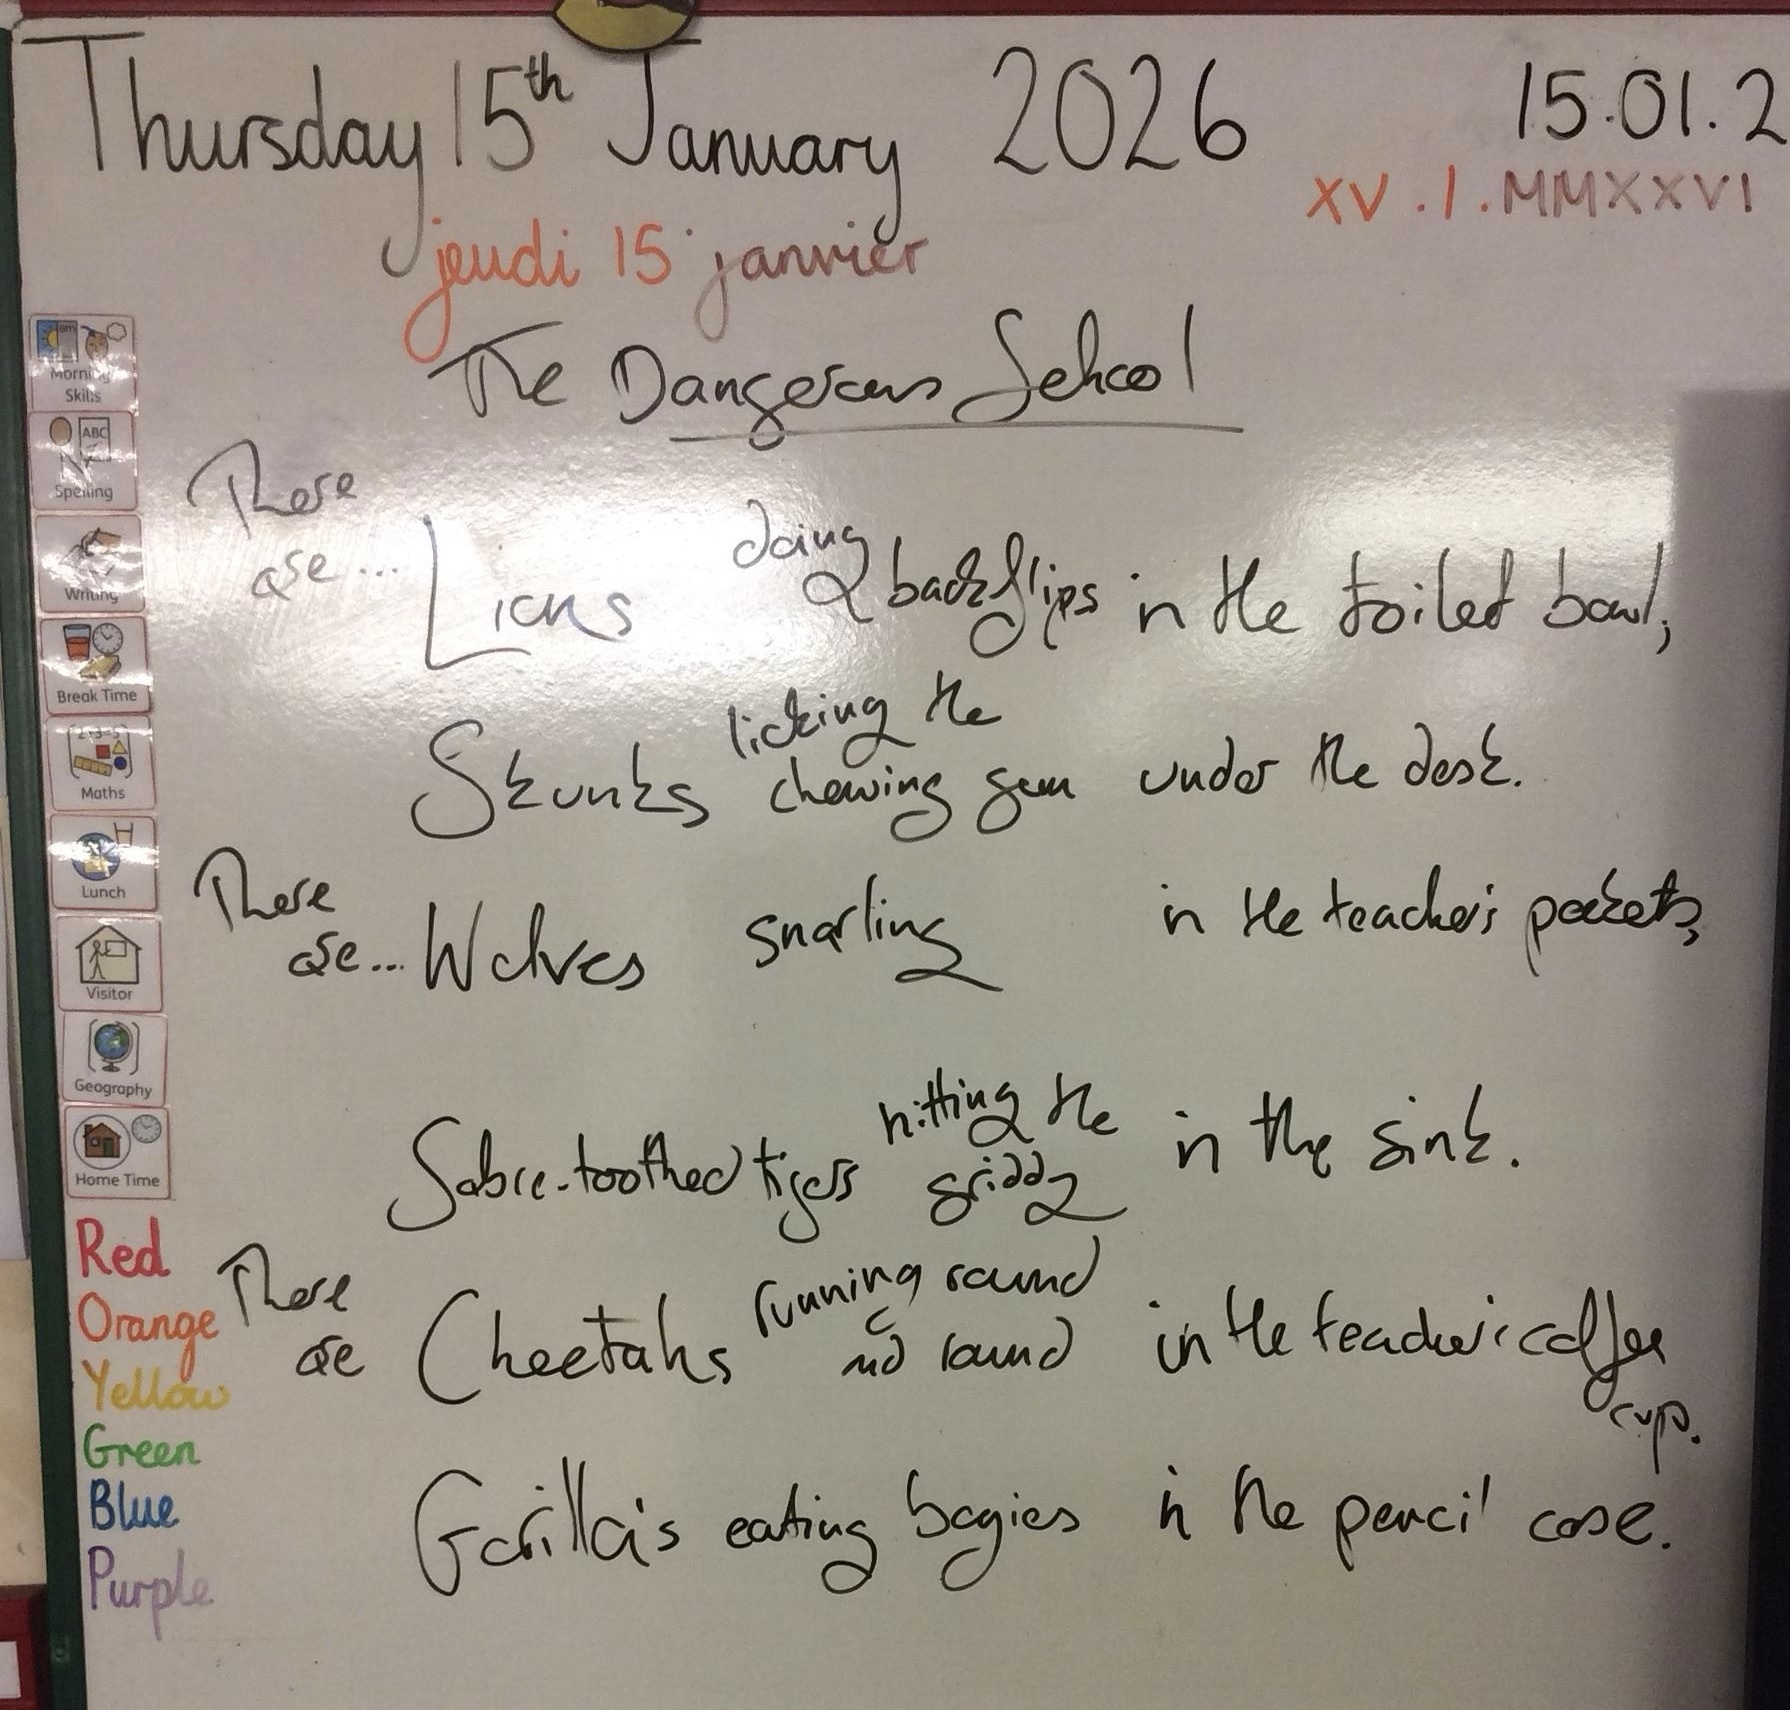 Thursday 15th January 2026
15.01.2
XV.I.MMXXVI
jeudi 15 janvier
The Dangerous School
There are... Lions doing backflips in the toilet bowl,
Skunks licking the chewing gum under the desk.
There are... Wolves snarling in the teacher's pockets,
Sabre-toothed tigers hitting the griddy in the sink.
There are Cheetahs running round and round in the teacher's coffee cup.
Gorilla's eating bogies in the pencil case.
Morning Skills
ABC
Spelling
Writing
Break Time
Maths
Lunch
Visitor
Geography
Home Time
Red
Orange
Yellow
Green
Blue
Purple